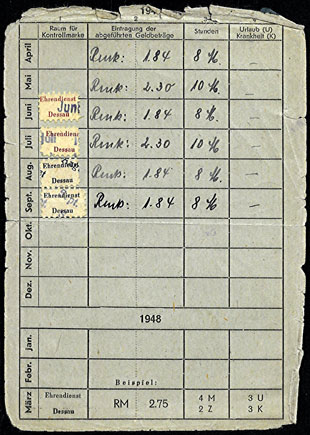 194
2 3 4
Raum für Kontrollmarke Eintragung der abgeführten Geldbeträge Stunden Urlaub (U) Krankheit (K)
April 1.84 8 –
Mai 2.30 10 –
Juni Ehrendienst Juni Dessau 1.84 8 –
Juli Ehrendienst Dessau 2.30 10 –
Aug. Ehrendienst Dessau 1.84 8 –
Sept. Ehrendienst Dessau 1.84 8 –
Okt.
Nov.
Dez.
1948
Jan.
Febr.
Beispiel:
März Ehrendienst Dessau RM 2.75 4 M 3 U
2 Z 3 K